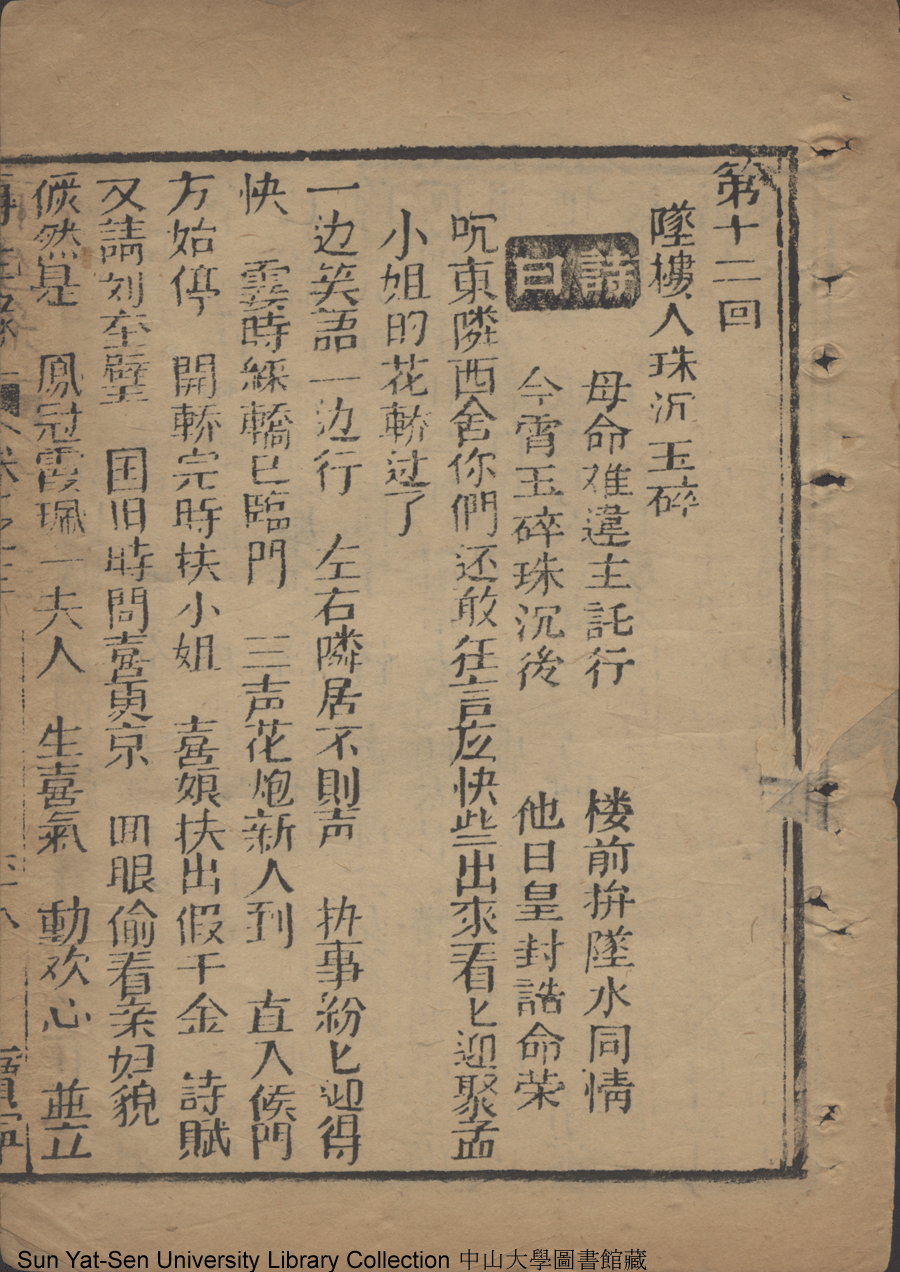 第十二回
墜樓人珠沉玉碎
詩曰
母命难違主託行　楼前拚墜水同情
今霄玉碎珠沉後　他日皇封誥命荣
呪東隣西舍你們还敢在言庅快些出來看匕迎聚孟
小姐的花轎过了
一边笑語一边行　左右隣居不則声　抍事紛匕迎得
快　霎時綵轎已臨門　三声花炮新人到　直入侯門
方始停　開轎完時扶小姐　喜娘扶出假千金　詩賦
又請刘奎璧　国旧時間喜更京　回眼偷看亲妇貌
倐然是　鳳冠霞珮一夫人　生喜氣　動欢心　並立
Sun Yat-Sen University Library Collection 中山大學圖書館藏